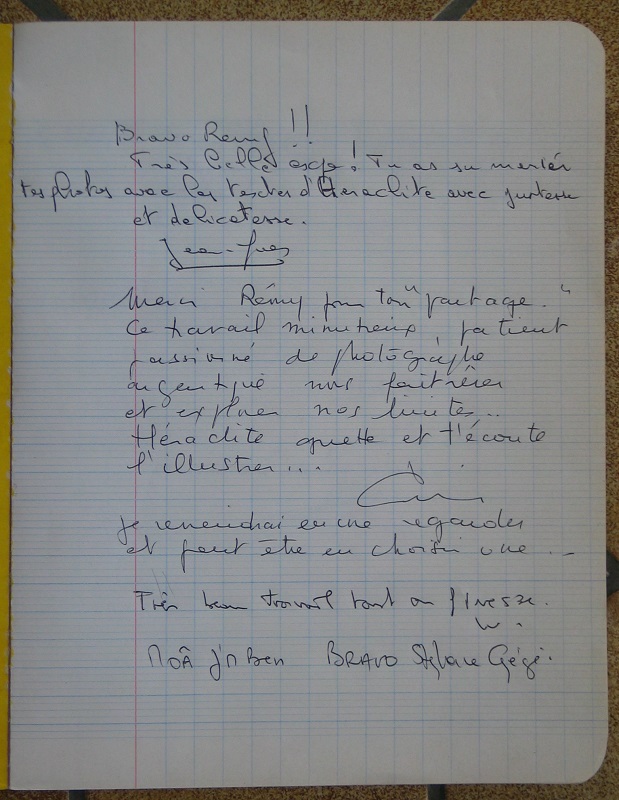 Bravo Remy !!
Très belle expo ! Tu as su marier
tes photos avec les textes d'Heraclite avec justesse
et delicatesse.
Jean-Yves
Merci Rémy pour ton "partage."
Ce travail minutieux, patient
passionné de photographe
argentique nous fait rêver
et explorer nos limites..
Héraclite guette et t'écoute
l'illustrer...
Je reviendrai encore regarder
et peut être en choisir une...
Très beau travail tout en finesse.
W.
MOÂ J'M BEN BRAVO Gégé.